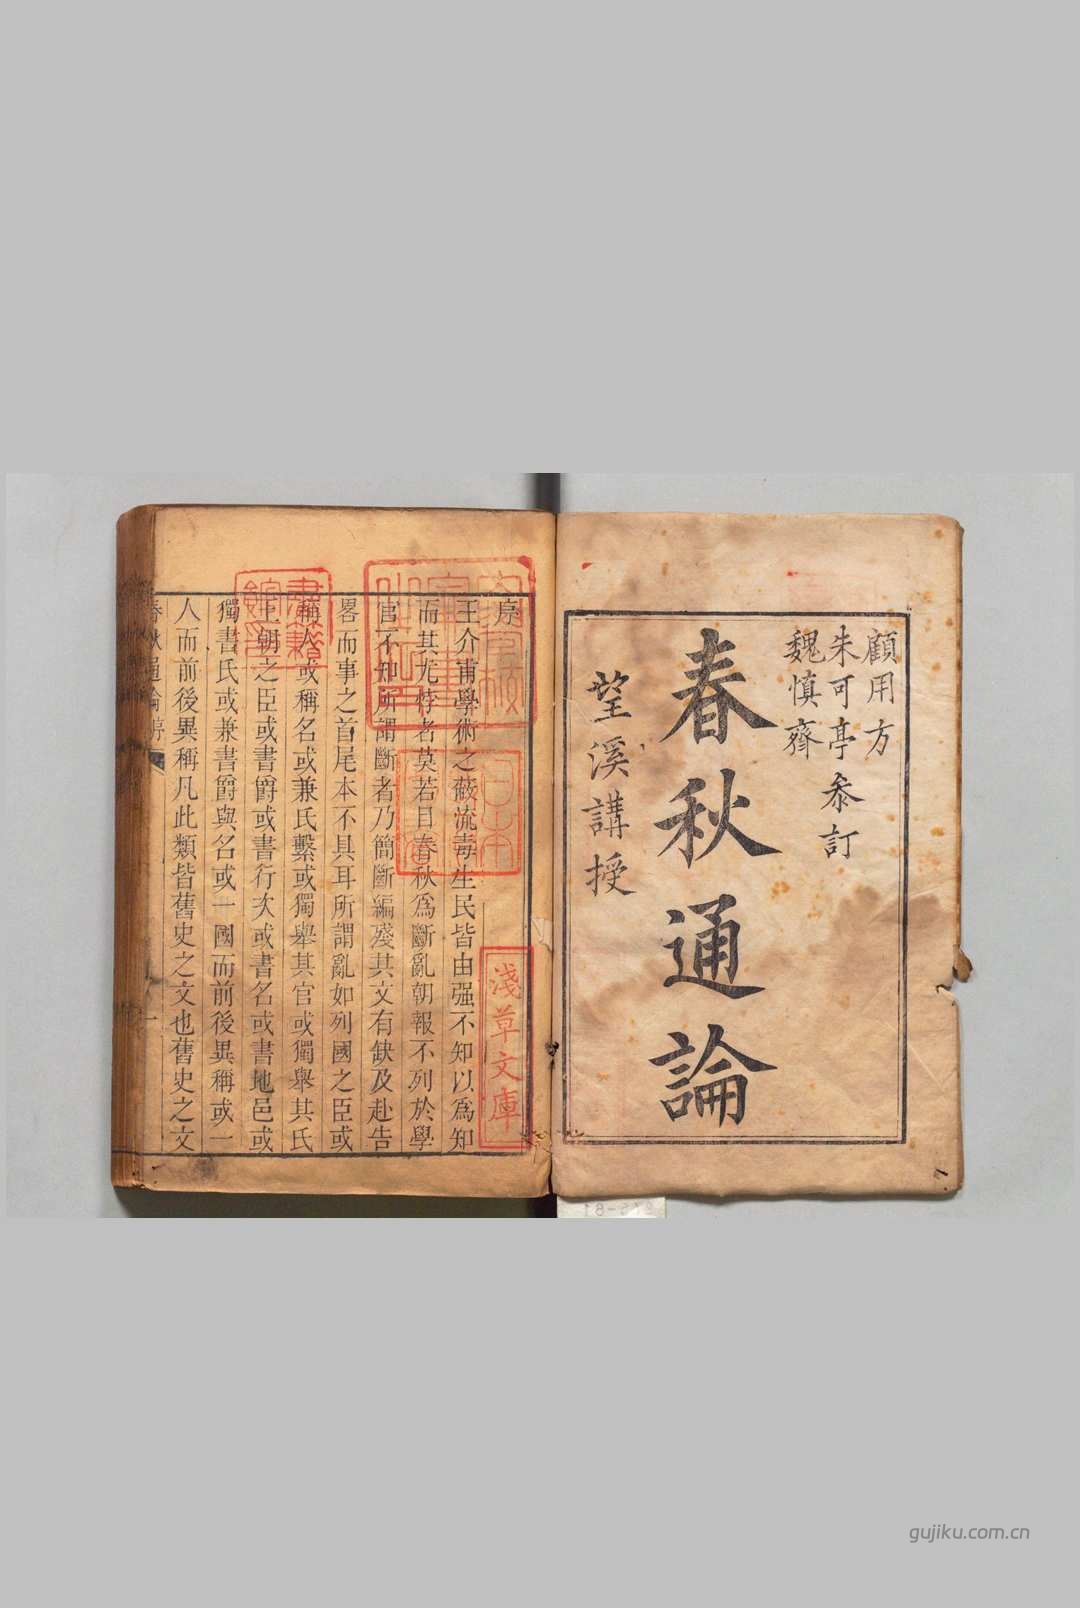 顧用方
朱可亭叅訂
魏慎齋
春秋通論
望溪講授
序
王介甫學術之蔽流毒生民皆由强不知以爲知
而其尤悖者莫若目春秋爲斷亂朝報不列於學
官不知所謂斷者乃簡斷編殘其文有缺及赴告
畧而事之首尾本不具耳所謂亂如列國之臣或
稱人或稱名或兼氏繫或獨舉其官或獨舉其氏
王朝之臣或書爵或書行次或書名或書地邑或
獨書氏或兼書爵與名或一國而前後異稱或一
人而前後異稱凡此類皆舊史之文也舊史之文
春秋通論序
一
日本
書籍
館印
淺草文庫
gujiku.com.cn